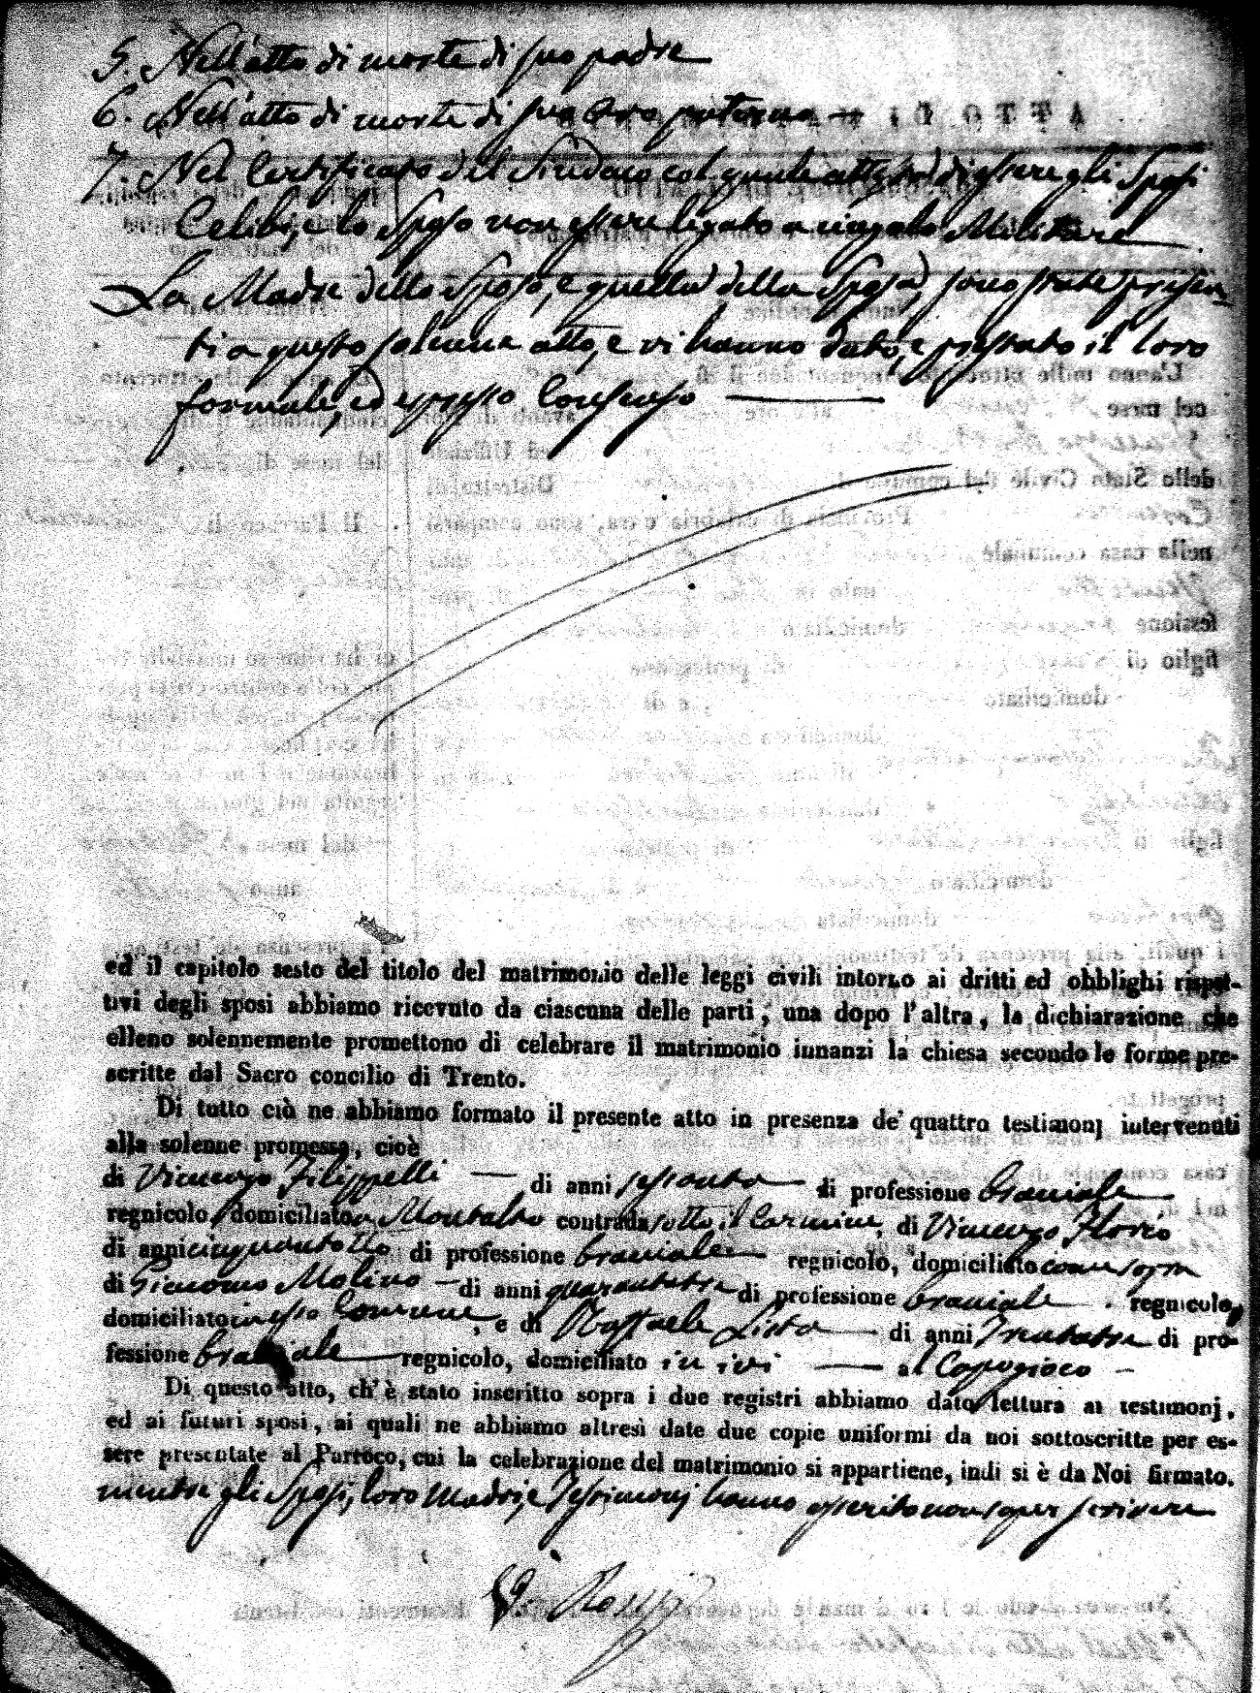 5. Nell'atto di morte di suo padre
6. Nell'atto di morte di suo Avo paterno
7. Nel Certificato del Sindaco col quale attesta di essere gli Sposi
Celibi, e lo Sposo non essere legato a cingolo Militare
La Madre dello Sposo, e quella della Sposa, sono state presen-
ti a questo solenne atto, e vi hanno dato, e prestato il loro
formale, ed espresso Consenso
ed il capitolo sesto del titolo del matrimonio delle leggi civili intorno ai dritti ed obblighi rispet-
tivi degli sposi abbiamo ricevuto da ciascuna delle parti, una dopo l'altra, la dichiarazione che
elleno solennemente promettono di celebrare il matrimonio innanzi la chiesa secondo le forme pre-
scritte dal Sacro concilio di Trento.
Di tutto ciò ne abbiamo formato il presente atto in presenza de' quattro testimonj intervenuti
alla solenne promessa, cioè
di Vincenzo Filippelli — di anni sessanta di professione bracciale
regnicolo domiciliato a Montalto contrada sotto il Carmine, di Vincenzo
di anni cinquantotto di professione bracciale regnicolo, domiciliato come sopra
di Giacomo Molino — di anni quarantatre di professione bracciale . regnicolo,
domiciliato in esso Comune, e di Raffaele — di anni Trentatre di pro-
fessione bracciale regnicolo, domiciliato in ivi — al Capogioco —
Di questo atto, ch'è stato inscritto sopra i due registri abbiamo dato lettura ai testimonj,
ed ai futuri sposi, ai quali ne abbiamo altresì date due copie uniformi da noi sottoscritte per es-
sere presentate al Parroco, cui la celebrazione del matrimonio si appartiene, indi si è da Noi firmato.
mentre gli Sposi, loro madri, e Testimonj hanno asserito non saper scrivere